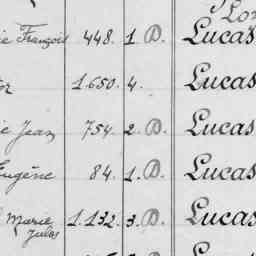 François 448. 1 D. Lucas
1.650. 4. Lucas
Jean 754. 2 D. Lucas
Eugène 84. 1 D. Lucas
Marie Jules 1.132. 3. D. Lucas